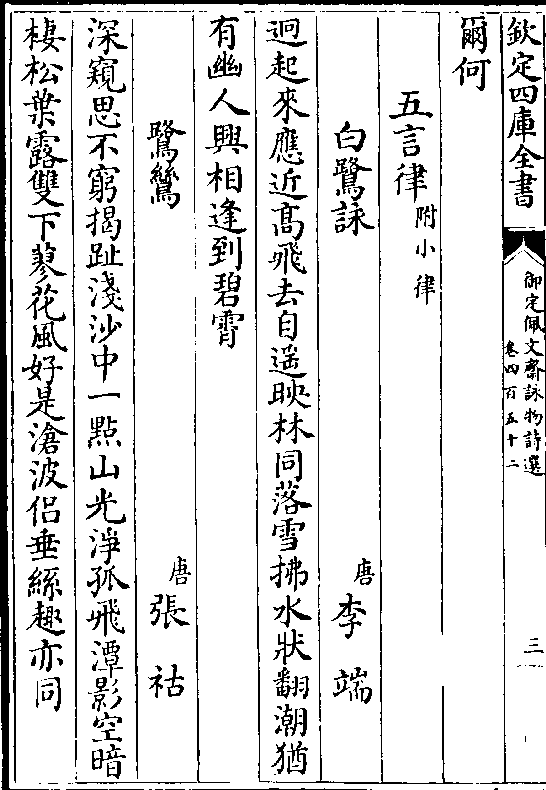 欽定四庫全書
御定佩文齋詠物詩選
卷四百五十二
三
爾何
五言律附小律
白鷺詠 唐 李端
迥起來應近高飛去自遥映林同落雪拂水狀翻潮猶
有幽人興相逢到碧霄
鷺鷥 唐 張祜
深窺思不窮揭趾淺沙中一點山光淨孤飛潭影空暗
棲松葉露雙下蓼花風好是滄波侶垂絲趣亦同